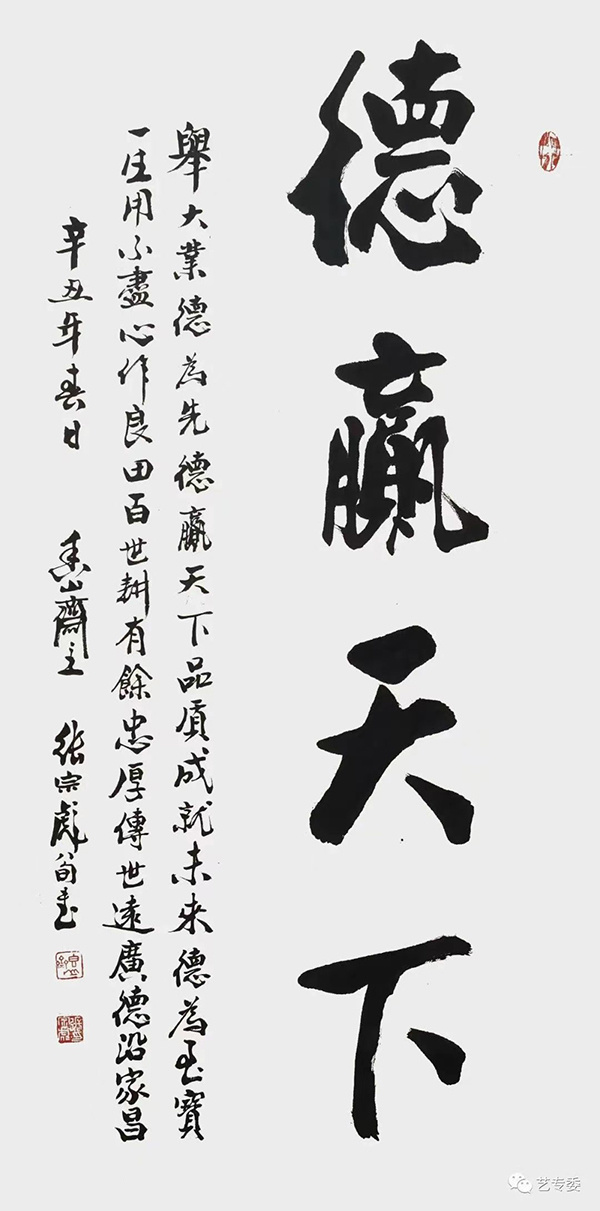 德贏天下
舉大業德為先德贏天下品質成就未來德為至寶
一生用不盡心作良田百世耕有餘忠厚傳世遠廣德沿家昌
辛丑年春日 山齋主 張宗彪 書
艺专委